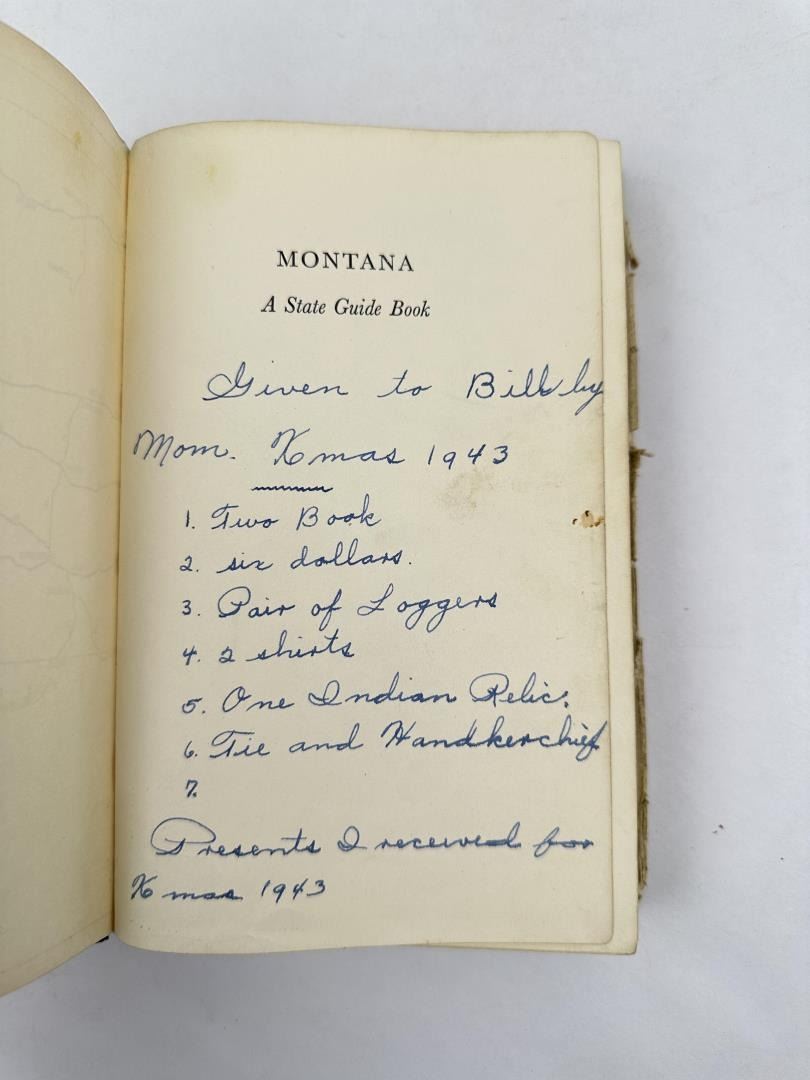 MONTANA
A State Guide Book
Given to Bill by
Mom. Xmas 1943
1. Two Book
2. six dollars.
3. Pair of Loggers
4. 2 shirts
5. One Indian Relic.
6. Tie and Handkerchief
7.
Presents I received for
Xmas 1943